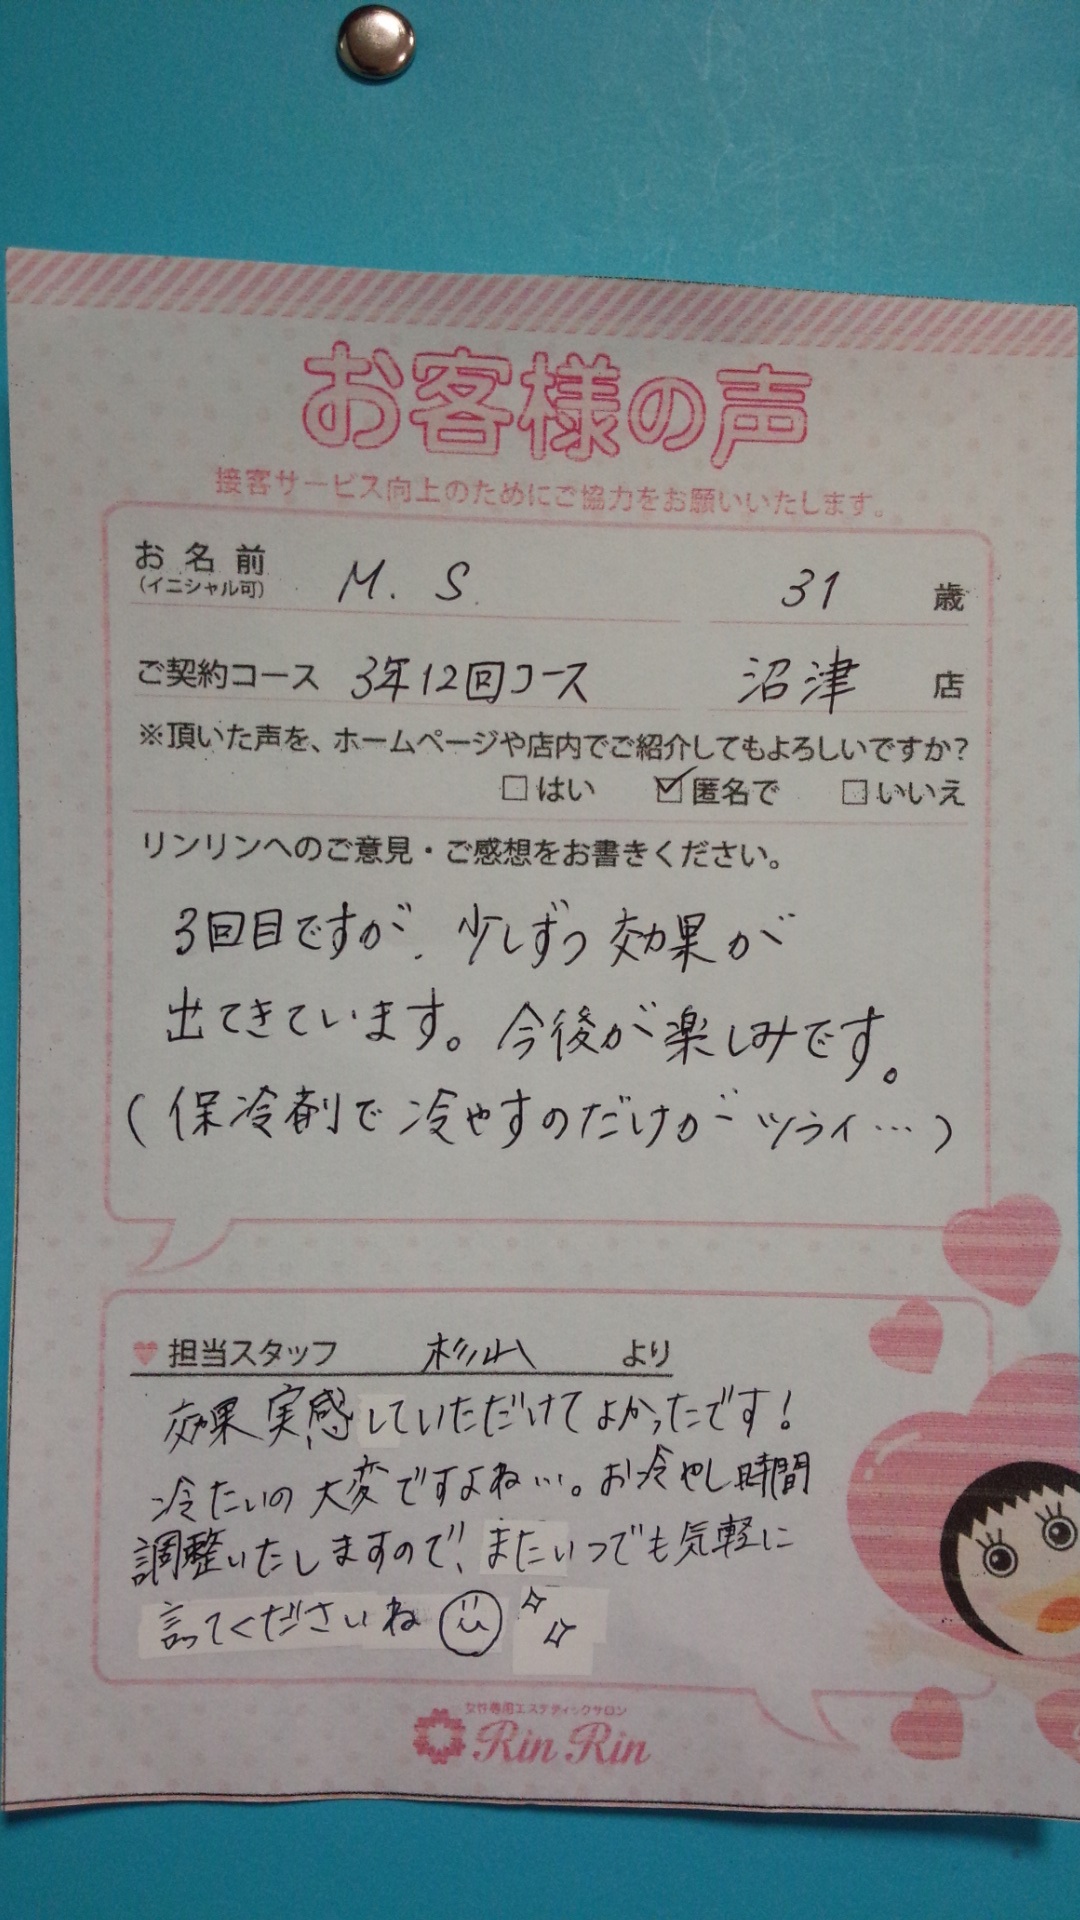 お客様の声
接客サービス向上のためにご協力をお願いいたします。
お名前 M. S. 31 歳
(イニシャル可)
ご契約コース 3年12回コース 沼津 店
※頂いた声を、ホームページや店内でご紹介してもよろしいですか?
□はい ☑匿名で □いいえ
リンリンへのご意見・ご感想をお書きください。
3回目ですが、少しずつ効果が
出てきています。今後が楽しみです。
(保冷剤で冷やすのだけがツライ…)
♥担当スタッフ 杉山 より
効果実感していただけてよかったです!
冷たいの大変ですよね…。お冷やし時間
調整いたしますので、またいつでも気軽に
言ってくださいね
女性専用エステティックサロン
Rin Rin